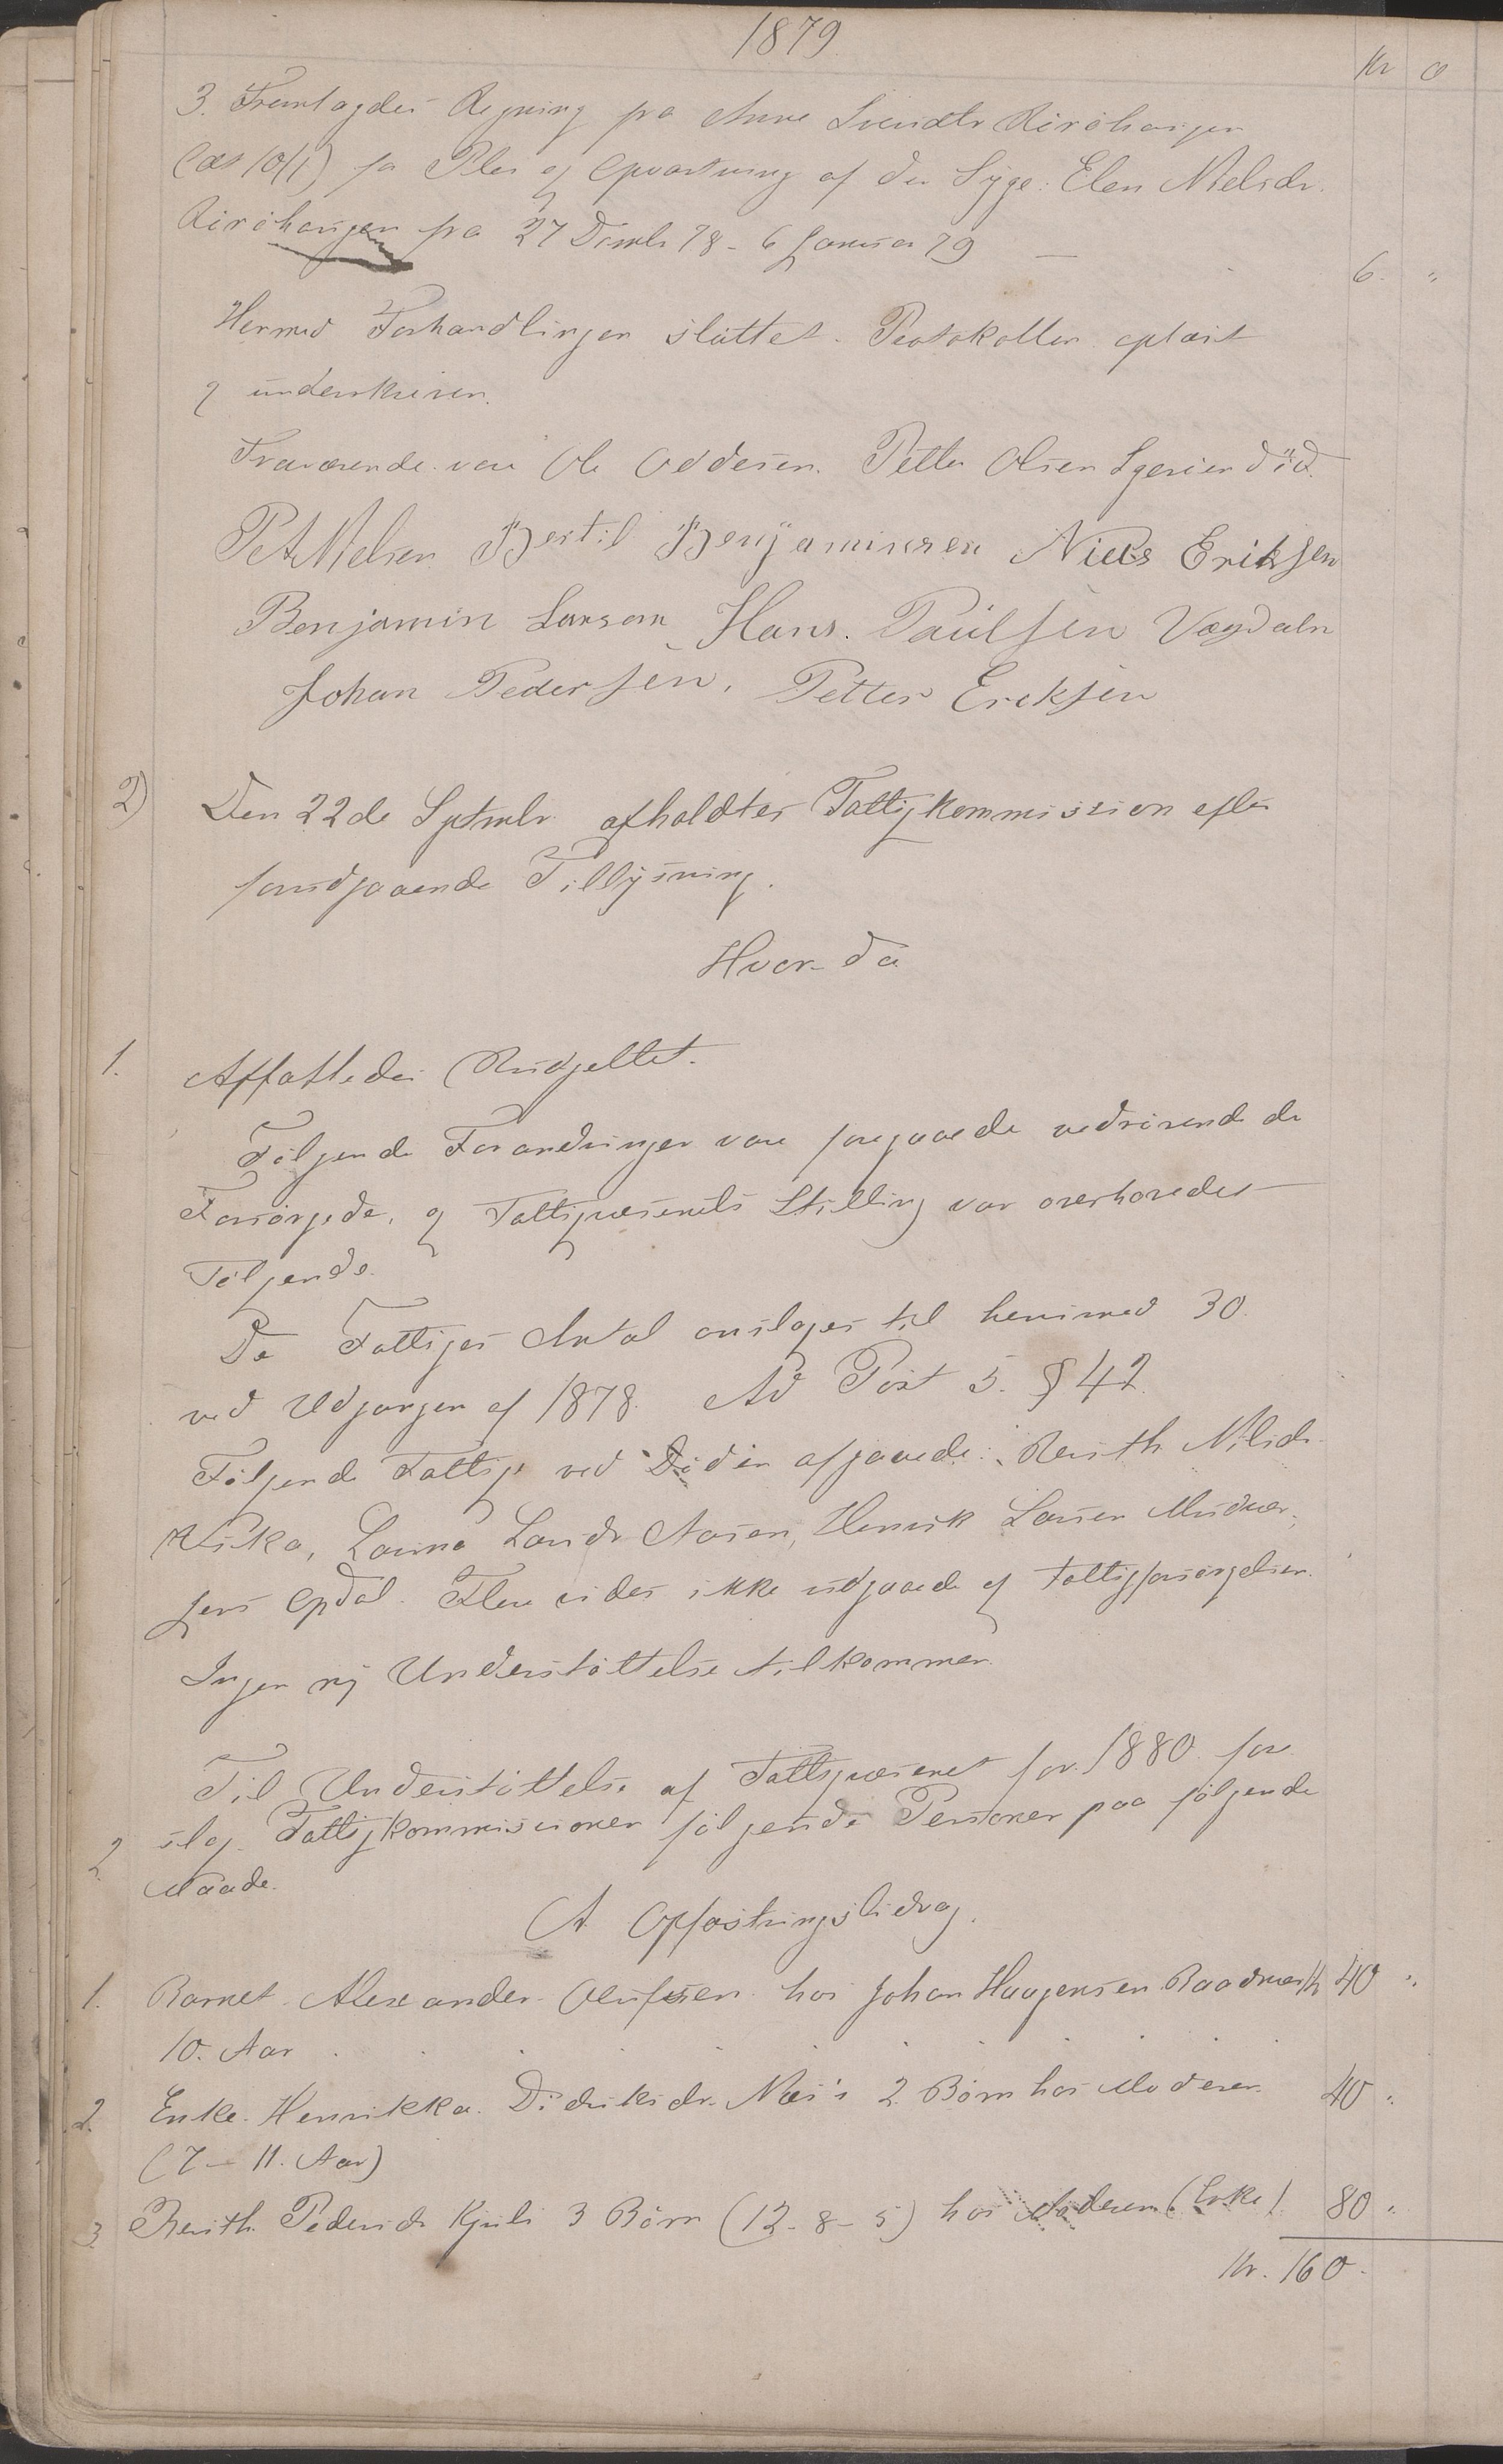 1879
Kr Ø
3. Fremlagdes Regning fra Anne Svendtr Risöhaugen
for Pleie og Opvartning af den Syge: Elen Nielsdr.
Risöhaugen fra 27 Decmbr 78 - 6 Januar 79 — 6. "
Hermed Forhandlingen sluttet. Protokollen oplæst
og underskreven.
Fraværende vare Ole Oddesen. Petter Olsen död.
Pet. A Nielsen Bertil Benjaminsen Niels Eriksen
Benjamin Larsen Hans. Paulsen Vaagdalen
Johan Pedersen, Petter Ereksen
2) Den 22de Septmbr afholdtes Fattigkommission efter
forudgaaende Tillysning.
Hvor da
1. Affattedes Budgettet.
Fölgende Forandringer vare foregaaede vedrörende de
Forsörgede, og Fattigvæsenets Stilling var overhovedet
Fölgende.
De Fattiges Antal ansloges til henimod 30.
ved Udgangen af 1878. Ad Post 5. § 42.
Fölgende Fattige ved Döden afgaaede: Berith Nilsdr.
Lanna Larsdr Aasen, Henrik Larsen
Jens Opdal. Flere vides ikke udgaaede af Fattigforsörgelsen.
Ingen ny Understöttelse tilkommen.
Til Understöttelse af Fattigvæsenet for 1880 fore
2 slog Fattigkommissionen fölgende Personer paa fölgende
Maade.
A Opfostringsbidrag.
1. Barnet Alexander Olufsen hos Johan Haagensen Baadnes Kr 40 "
10. Aar . . . . . . .
2. Enke Henrikka Didriksdr. Næs's 2 Börn hos Moderen 40 "
(7 - 11. Aar)
3 Berith Pedersdr 3 Börn (12 - 8 - 5) hos Moderen (Enke) 80 "
Kr. 160.